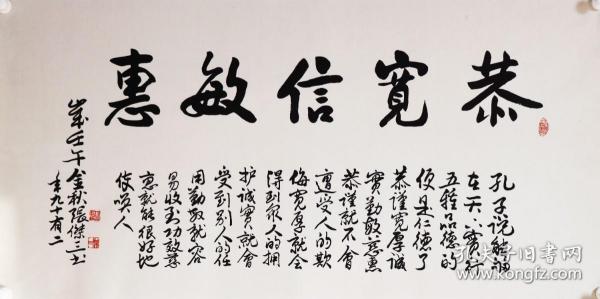 恭寬信敏惠
孔子說能夠
在天下實行
五種品德的
便是仁德了
恭謹寬厚誠
實勤敏慈惠
恭謹就不會
遭受人的欺
侮寬厚就会
得到众人的拥
护誠實就會
受到别人的任
用勤敏就容
易收到功效慈
惠就能很好地
使唤人
歲壬午金秋張傑三书
年九十有二
孔夫子旧书网
kongfz.com